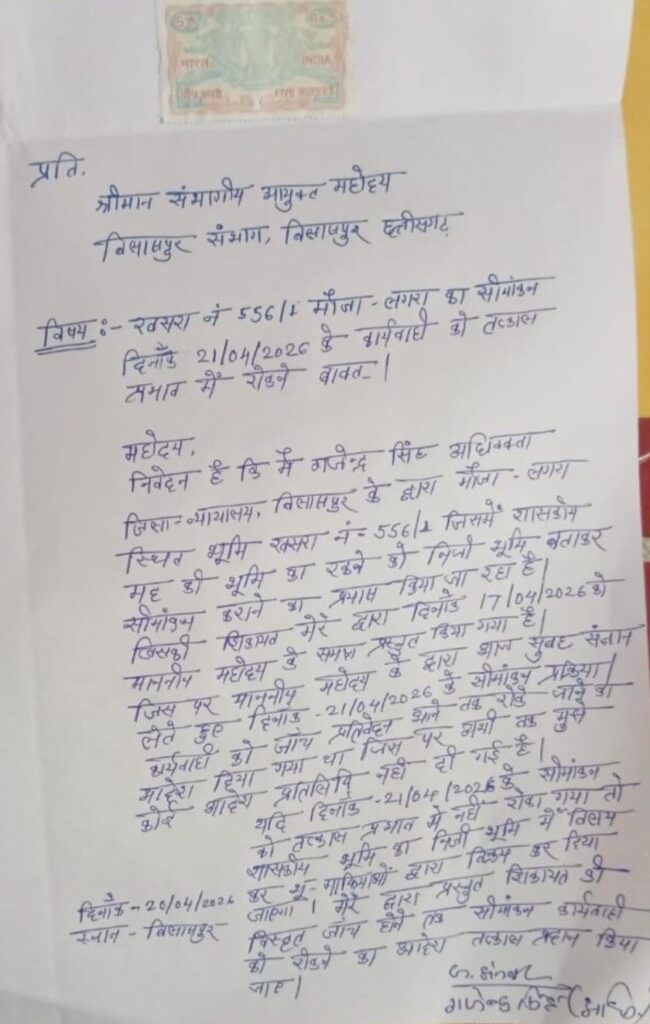 5रु
Rs.5
भारत
INDIA
पाँच रुपये
FIVE RUPEES
प्रति,
श्रीमान संभागीय आयुक्त महोदय
बिलासपुर संभाग, बिलासपुर छत्तीसगढ़
विषय :- खसरा नं 556/1 मौजा - लगरा का सीमांकन
दिनाँक 21/04/2026 के कार्यवाही को तत्काल
प्रभाव में रोकने बावत_।
महोदय,
निवेदन है कि मैं गजेन्द्र सिंह अधिवक्ता
जिला-न्यायालय, बिलासपुर के द्वारा मौजा - लगरा
स्थित भूमि खसरा नं = 556/1 जिसमें शासकीय
मद की भूमि का रकबे को निजी भूमि बताकर
सीमांकन कराने का प्रयास किया जा रहा है।
जिसकी शिकायत मेरे द्वारा दिनाँक 17/04/2026 को
माननीय महोदय के समक्ष प्रस्तुत किया गया है।
जिस पर माननीय महोदय के द्वारा आज सुबह संज्ञान
लेते हुए दिनाँक - 21/04/2026 के सीमांकन प्रक्रिया।
कार्यवाही को जाँच प्रतिवेदन आने तक रोके जाने का
आदेश दिया गया था जिस पर अभी तक मुझे
कोई आदेश प्रतिलिपि नहीं दी गई है।
यदि दिनाँक - 21/04/2026 के सीमांकन
को तत्काल प्रभाव में नहीं रोका गया तो
शासकीय भूमि का निजी भूमि में विलय
कर भू-माफियाओं द्वारा विक्रय कर दिया
जाएगा। मेरे द्वारा प्रस्तुत शिकायत की
विस्तृत जाँच होने तक सीमांकन कार्यवाही
को रोकने का आदेश तत्काल प्रदान किया
जाए।
दिनाँक - 20/04/2026
स्थान - बिलासपुर
गजेन्द्र सिंह (अधि.)